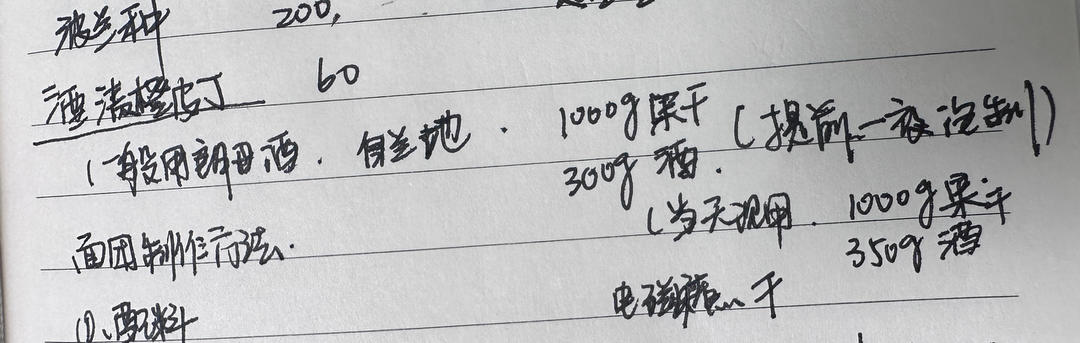 波兰种 200,
酒渍橙皮丁 60
(一般用朗姆酒. 白兰地. 1000g果干 (提前一夜泡制)
300g 酒.
(当天现用. 1000g果干
350g 酒
面团制作方法.
①、配料
电磁 干